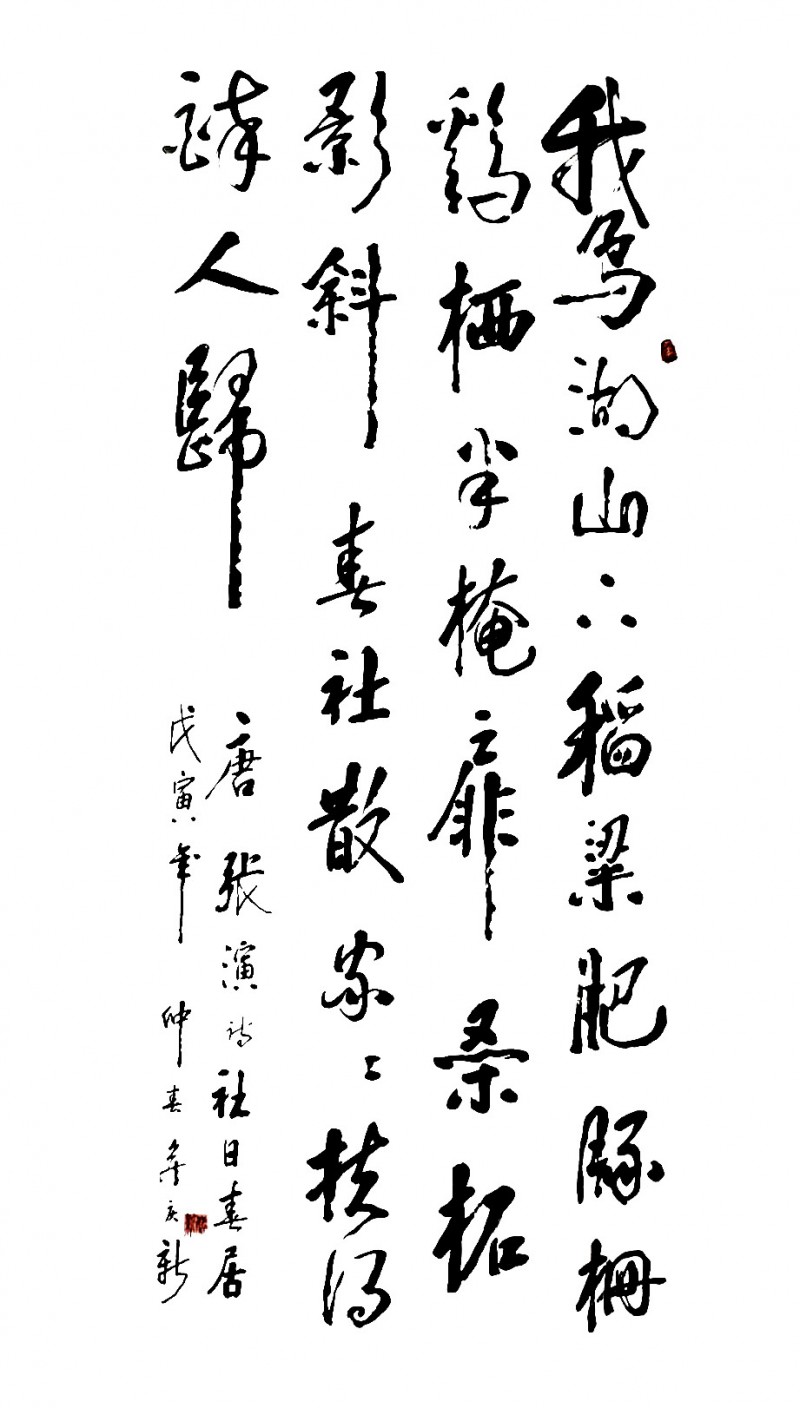 鵞湖山下稻粱肥豚柵
鷄栖半掩扉桑柘
影斜春社散家〻扶得
醉人歸
唐張演詩社日春居
戊寅年仲春新